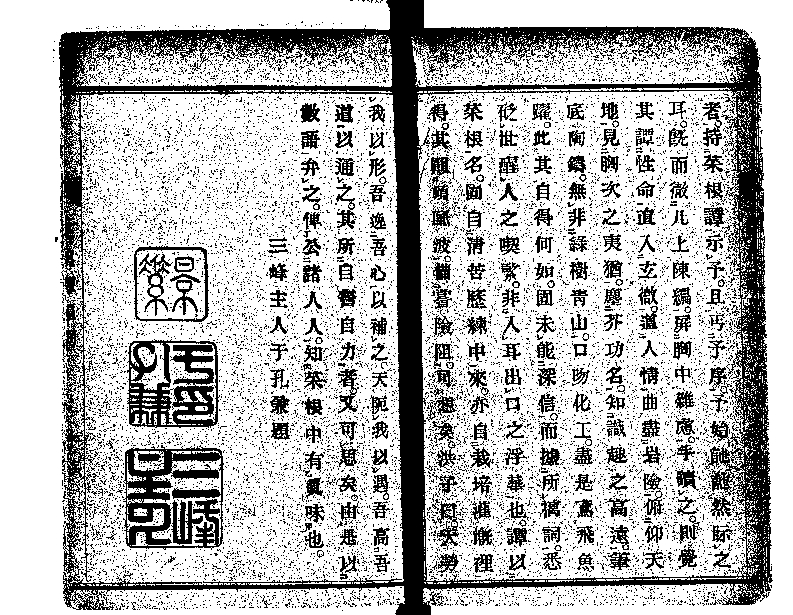 者。持菜根譚示予。且丐予序。予始訑訑然眎之
耳。旣而徹几上陳編。屏胸中雜慮。手讀之。則覺
其譚性命直入玄微。道人情曲盡岩險。俯仰天
地。見胸次之夷猶。塵芥功名。知識趣之高遠。筆
底陶鑄。無非綠樹青山。口吻化工。盡是鳶飛魚
躍。此其自得何如。固未能深信。而據所摛詞。悉
砭世醒人之喫緊。非入耳出口之浮華也。譚以
菜根名。固自清苦歷練中來。亦自栽培灌漑裡
得。其顚頓風波。備嘗險阻。可想矣。洪子曰。天勞
我以形。吾逸吾心以補之。天阨我以遇。吾高吾
道以通之。其所自警自力者。又可思矣。由是以
數語弁之。俾公諸人人。知菜根中有眞味也。
三峰主人于孔兼題
三峰